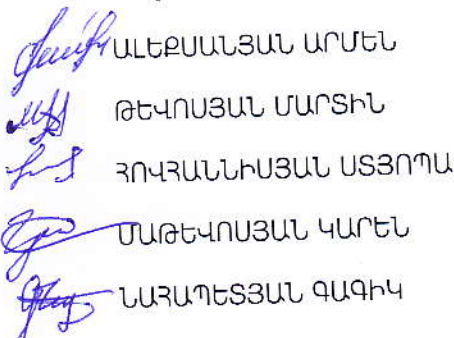 ԱԼԵՔՍԱՆՅԱՆ ԱՐՄԵՆ
ԹԵՎՈՍՅԱՆ ՄԱՐՏԻՆ
ՀՈՎՀԱՆՆԻՍՅԱՆ ՍՏՅՈՊԱ
ՄԱԹԵՎՈՍՅԱՆ ԿԱՐԵՆ
ՆԱՀԱՊԵՏՅԱՆ ԳԱԳԻԿ